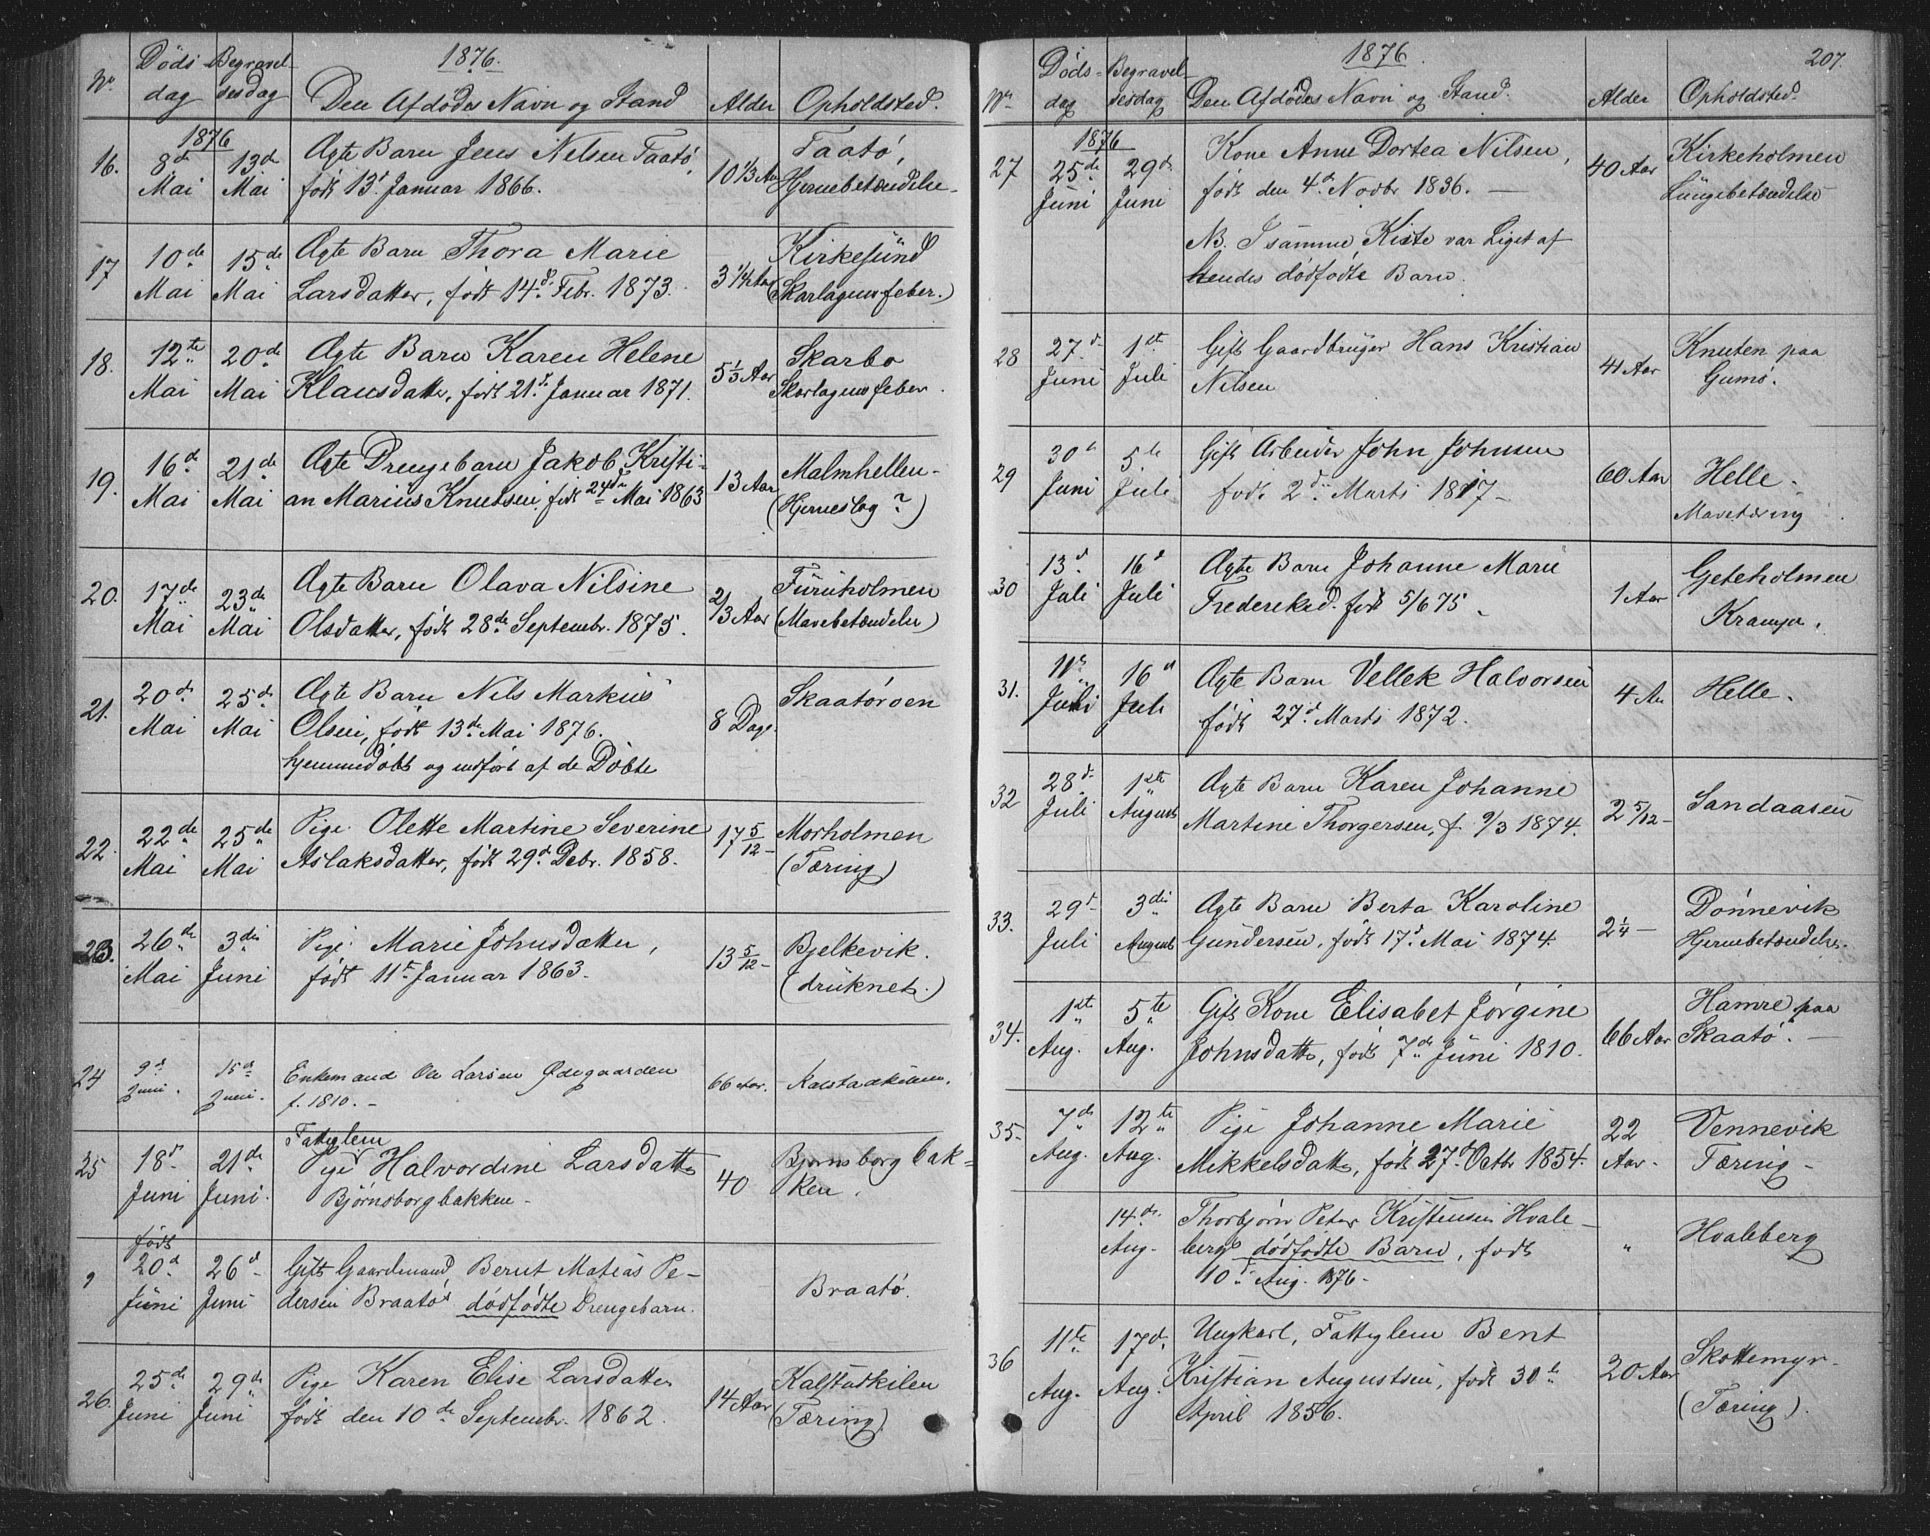 1876.
No. Dödsdag Begravelsesdag Den Afdödes Navn og Stand Alder Opholdsted.
1876
16. 8d Mai 13de Mai Ægte Barn Jens Nilsen Taatö, 10 1/3 Aar Taatö,
födt 13d Januar 1866. Hjernebetændelse.
17 10de Mai 15de Mai Ægte Barn Thora Marie 3 1/4 Aar Kirkesund
Larsdatter, födt 14d Febr. 1873. (Skarlagensfeber.)
18. 12te Mai 20de Mai Ægte Barn Karen Helene 5 1/3 Aar Skarbo
Klausdatter, födt 21d Januar 1871. Skarlagensfeber.
19. 16d Mai 21de Mai Ægte Drengebarn Jakob Kristi- 13 Aar Malmhellen-
an Marius Knutsen, födt 24de Mai 1863 (Hjerneslag?)
20. 17de Mai 23de Mai Ægte Barn Olava Nilsine 2/3 Aar Furuholmen
Olsdatter, födt 28de Septembr. 1875. (Mavebetændelse)
21. 20de Mai 25de Mai Ægte Barn Nils Markus 8 Dage. Skaatöroen
Olsen, födt 13de Mai 1876.
hjemmedöbt og indfört af de Döbte
22. 22de Mai 25de Mai Pige Olette Martine Severine 17 5/12 - Morholmen
Aslaksdatter, födt 29d Debr. 1858. (Tæring)
23. 26de Mai 3die Juni Pige Marie Johnsdatter, 13 5/12 - Bjelkevik.
födt 11te Januar 1863. (druknet.)
24 9d Juni. 15de Juni. Enkemand Ole Larsen Ødegaarden 66 Aar. Kalstadkilen.
f. 1810. -
Fattiglem
25 18d Juni 21de Juni. Pige Halvordine Larsdatter 40 Björnsborgbak-
Björnsborgbakken - ken.
födt
" 20d Juni 26d Juni Gift Gaardmand Bernt Matias Pe- Braatö.
dersen Braatös dödfödte Drengebarn.
26. 25de Juni 29de Juni Pige Karen Elise Larsdatter 14 Aar Kalstadkilen
födt den 10de Septembr. 1862. (Tæring)
1876. 207.
No. Dödsdag Begravelsesdag Den Afdödes Navn og Stand. Alder Opholdsted.
1876
27 25de Juni 29de Juni Kone Anne Dortea Nilsen, 40 Aar Kirkeholmen
födt den 4de Novbr 1836. - Lungebetændelse
NB. I samme Kiste var Liget af
hendes dödfödte Barn.
28 27d Juni 1st Juli Gift Gaardbruger Hans Kristian 41 Aar Knuten paa
Nilsen Gumö.
29 30te Juni 5te Juli Gift Arbeider John Johnsen 60 Aar Helle.
födt 2den Marts 1817 - Mavetæring
30 13d Juli 16d Juli Ægte Barn Johanne Marie 1 Aar Geteholmen
Frederiksd. födt 5/6 75. Krampe.
31. 11te Juli 16d Juli Ægte Barn Vellek Halvorsen 4 Aar Helle.
födt 27d Marts 1872.
32 28d Juli 1ste August Ægte Barn Karen Johanne 2 5/12 - Sandaasen
Martine Thorgersen, f. 9/3 1874.
33. 29d Juli 3die August Ægte Barn Berta Karoline 2 1/4 - Dönnevik
Gundersen, födt 17d Mai 1874. Hjernebetændelse.
34. 1ste Aug. 5te Aug. Gift Kone Elisabet Jörgine 66 Aar Hamre paa
Johnsdatter, födt 7de Juni 1810. Skaatö.
35- 7de Aug. 12te Aug. Pige Johanne Marie 22 Aar. Vennevik
Mikkelsdatter, födt 27d Octbr 1854. Tæring -
14de Aug. Thorbjörn Peter Kristensen Hvale- " Hvaleberg
bergs dödfödte Barn, födt
10d Aug. 1876.
36 11te Aug. 17de Aug. Ungkarl, Fattiglem Bent 20 Aar Skottemyr.
Kristian Augustsen, födt 30te (Tæring).
April 1856.